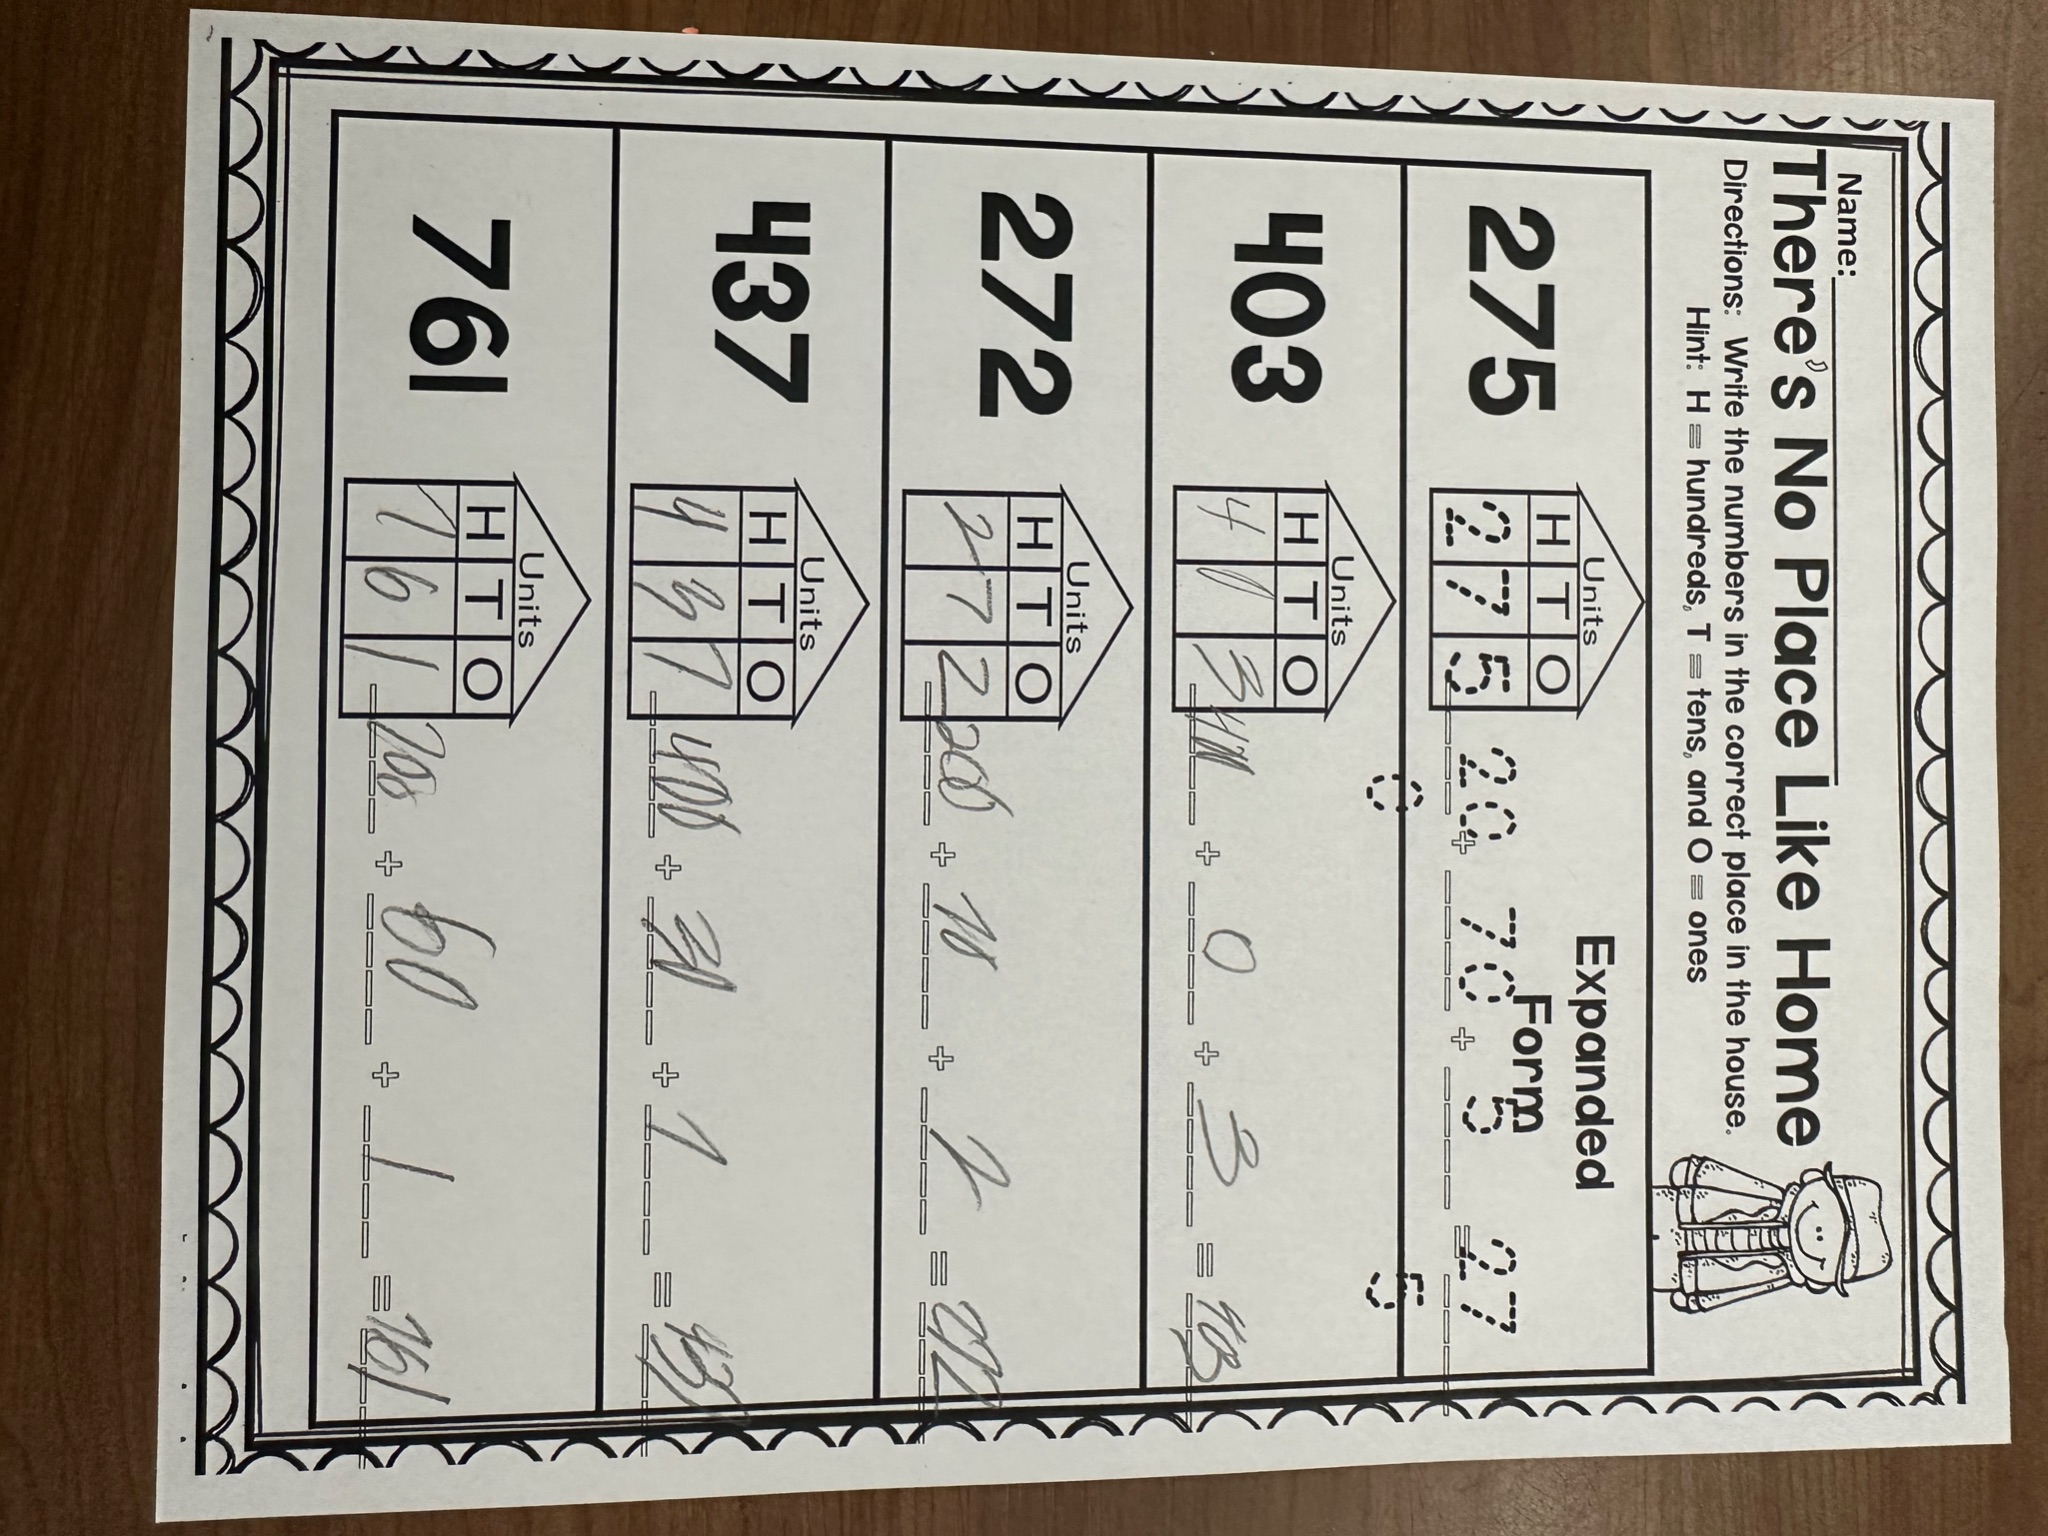 Name:
There's No Place Like Home
Directions: Write the numbers in the correct place in the house.
Hint: H = hundreds, T = tens, and O = ones
Expanded
Form
275
Units
H T O
2 7 5
20 + 70 + 5 = 27
0 5
403
Units
H T O
4 0 3
400 + 0 + 3 = 403
272
Units
H T O
2 7 2
200 + 70 + 2 = 272
437
Units
H T O
4 3 7
400 + 30 + 7 = 437
761
Units
H T O
7 6 1
700 + 60 + 1 = 761